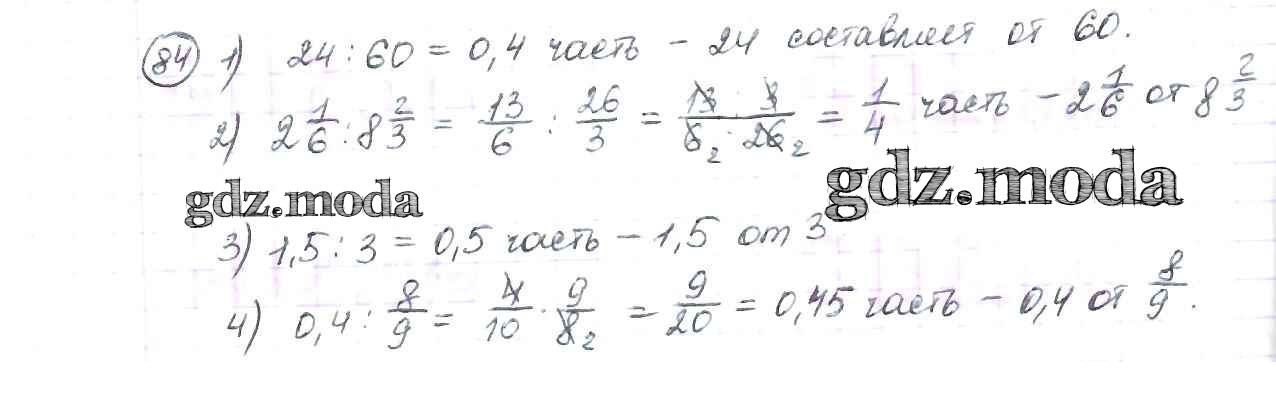 84 1) 24 : 60 = 0,4 часть - 24 составляет от 60.
2) 2 1/6 : 8 2/3 = 13/6 : 26/3 = 13 · 3 / 6 2 · 26 2 = 1/4 часть - 2 1/6 от 8 2/3
gdz.moda gdz.moda
3) 1,5 : 3 = 0,5 часть - 1,5 от 3
4) 0,4 : 8/9 = 4/10 · 9/8 2 = 9/20 = 0,45 часть - 0,4 от 8/9.